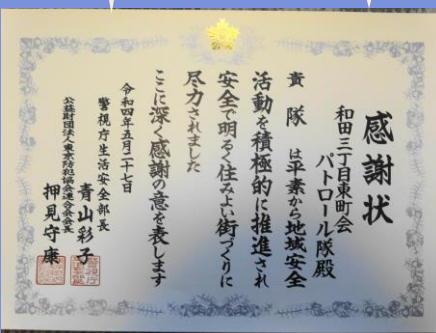 感謝状
和田三丁目東町会
パトロール隊殿
貴隊は平素から地域安全
活動を積極的に推進され
安全で明るく住みよい街づくりに
尽力されました
ここに深く感謝の意を表します
令和四年五月二十七日
警視庁生活安全部長
青山彩子
公益財団法人東京防犯協会連合会会長
押見守康